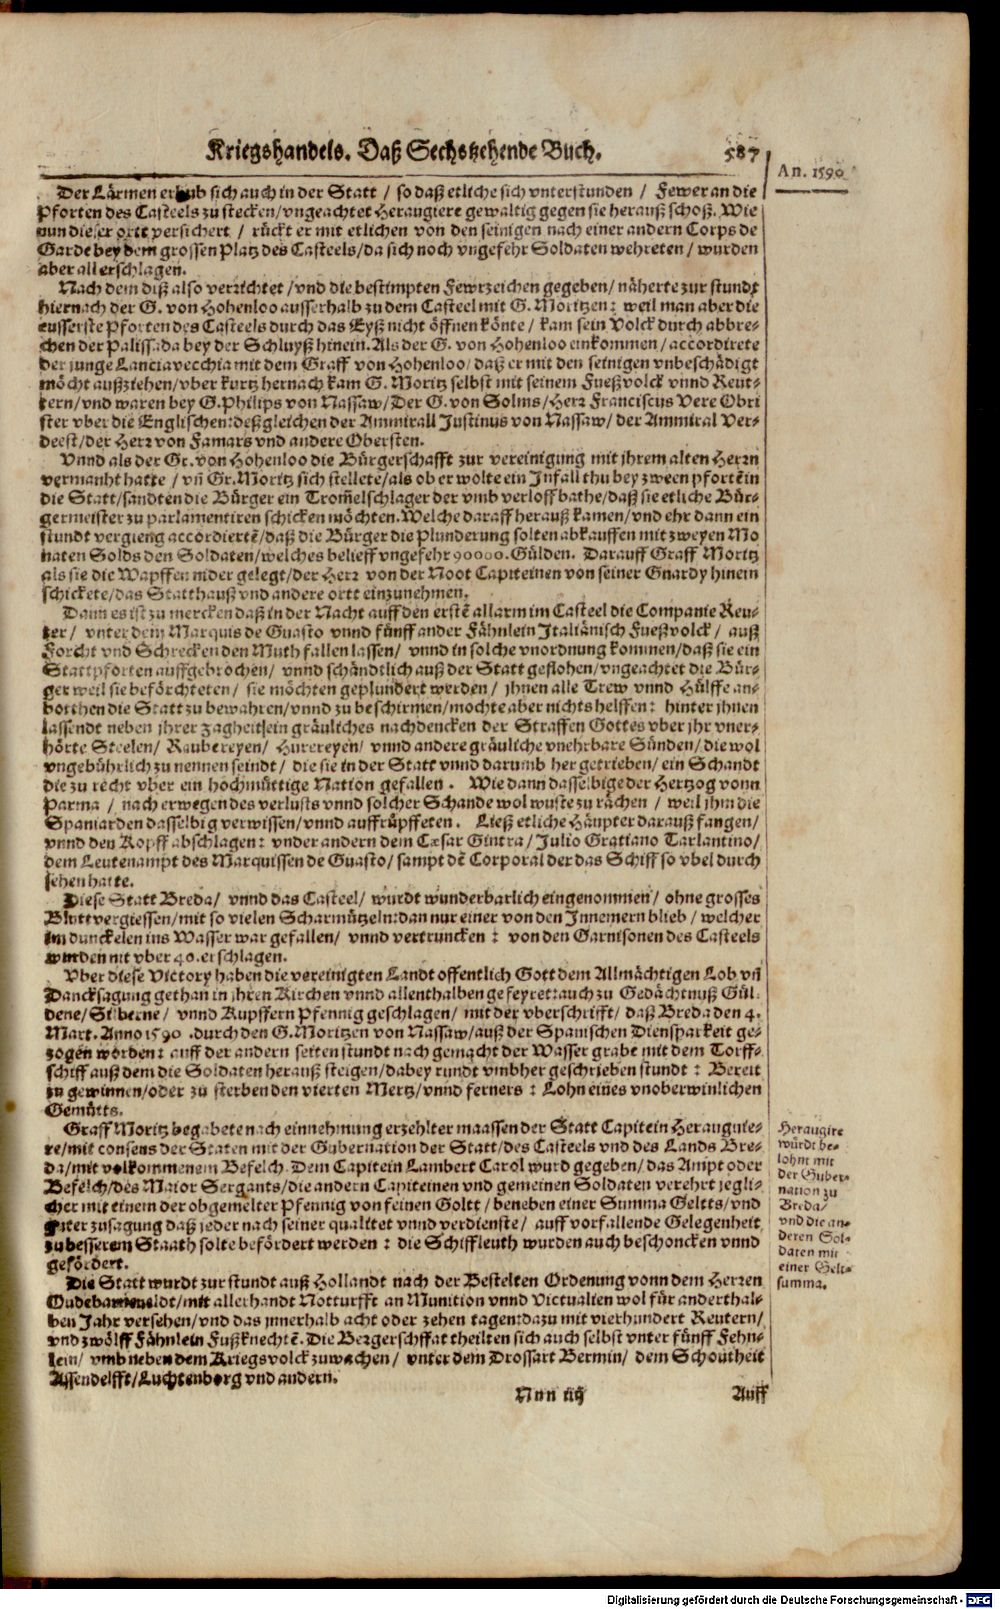 Kriegshandels. Daß Sechszehende Buch. 587
An. 1590
Der Lärmen erhub sich auch in der Statt / so daß etliche sich vnterstunden / Fewer an die
Pforten des Casteels zu stecken/vngeachtet Heraugiere gewaltig gegen sie herauß schoß. Wie
nun dieser ortt versichert / rückt er mit etlichen von den seinigen nach einer andern Corps de
Garde bey dem grossen Platz des Casteels/da sich noch vngefehr Soldaten wehreten / wurden
aber all erschlagen.
Nach dem diß also verrichtet /vnd die bestimpten Fewrzeichen gegeben/ näherte zur stundt
hiernach der G. von Hohenloo ausserhalb zu dem Casteel mit G. Moritzen: weil man aber die
eusserste Pforten des Casteels durch das Eyß nicht öffnen könte/ kam sein Volck durch abbre-
chen der Palissada bey der Schluyß hinein. Als der G. von Hohenloo einkommen/ accordirete
der junge Lanciavecchia mit dem Graff von Hohenloo/ daß er mit den seinigen vnbeschädigt
möcht außziehen/vber kurtz hernach kam G. Moritz selbst mit seinem Fueßvolck vnnd Reut-
tern/vnd waren bey G. Philips von Nassaw/Der G. von Solms/Herr Franciscus Vere Obri
ster vber die Englischen: deßgleichen der Ammirall Justinus von Nassaw/ der Ammiral Ver-
deest/der Herr von Famars vnd andere Obersten.
Vnnd als der Gr. von Hohenloo die Bürgerschafft zur vereinigung mit jhrem alten Herrn
vermanht hatte / vñ Gr. Moritz sich stellete/als ob er wolte ein Infall thu bey zween pfortē in
die Statt/sandten die Bürger ein Trom̃elschlager der vmb verloff bathe/daß sie etliche Bür-
germeister zu parlamentiren schicken möchten. Welche daraff herauß kamen/vnd ehr dann ein
stundt vergieng accordiertē/daß die Bürger die Plunderung solten abkauffen mit zweyen Mo
naten Solds den Soldaten/welches belieff vngefehr 90000. Gülden. Darauff Graff Moritz
als sie die Wapffen nider gelegt/der Herr von der Noot Capiteinen von seiner Guardy hinein
schickete/das Statthauß vnd andere ortt einzunehmen.
Dann es ist zu mercken daß in der Nacht auff den erstē allarm im Casteel die Companie Reu-
ter/ vnter dem Marquis de Guasto vnnd fünff ander Fähnlein Italiänisch Fueßvolck / auß
Forcht vnd Schrecken den Muth fallen lassen/ vnnd in solche vnordnung kommen/daß sie ein
Stattpforten auffgebrochen/ vnnd schändtlich auß der Statt geflohen/vngeachtet die Bür-
ger weil sie beförchteten/ sie möchten geplundert werden/ jhnen alle Trew vnnd Hülffe an-
botthen die Statt zu bewahren/vnnd zu beschirmen/mochte aber nichts helffen: hinter jhnen
lassendt neben jhrer zagheit ein gräuliches nachdencken der Straffen Gottes vber jhr vner-
hörte Steelen/ Raubereyen/ Hurereyen/ vnnd andere gräuliche vnehrbare Sünden/die wol
vngebührlich zu nennen seindt/ die sie in der Statt vnnd darumb her getrieben/ein Schandt
die zu recht vber ein hochmüttige Nation gefallen. Wie dann dasselbige der Hertzog vonn
Parma / nach erwegen des verlusts vnnd solcher Schande wol wuste zu rächen / weil jhm die
Spaniarden dasselbig verwissen/vnnd auffrüpffeten. Ließ etliche Häupter darauß fangen/
vnnd den Kopff abschlagen: vnder andern dem Cæsar Gintra/ Julio Gratiano Tarlantino/
dem Leutenampt des Marquissen de Guasto/sampt dē Corporal der das Schiff so vbel durch
sehen hatte.
Diese Statt Breda/ vnnd das Casteel/ wurdt wunderbarlich eingenommen/ ohne grosses
Blutvergiessen/mit so vielen Scharmützeln: dan nur einer von den Innemern blieb / welcher
im dunckelen ins Wasser war gefallen/ vnnd vertruncken : von den Garnisonen des Casteels
wurden nit vber 40. erschlagen.
Vber diese Victory haben die vereinigten Landt offentlich Gott dem Allmächtigen Lob vñ
Dancksagung gethan in jhren Kirchen vnnd allenthalben gefeyret: auch zu Gedächtnuß Gül-
dene/ Silberne/ vnnd Kupffern Pfennig geschlagen/ mit der vberschrifft/ daß Breda den 4.
Mart. Anno 1590 .durch den G. Moritzen von Nassaw/auß der Spanischen Dienspar keit ge-
zogen worden: auff der andern seiten stundt nach gemacht der Wasser grabe mit dem Torff-
schiff auß dem die Soldaten herauß steigen/dabey rundt vmbher geschrieben stundt : Bereit
zu gewinnen/oder zu sterben den vierten Mertz/vnnd ferners : Lohn eines vnoberwinlichen
Gemütts.
Graff Moritz begabete nach einnehmung erzehlter maassen der Statt Capitein Herauguie-
re/mit consens der Staten mit der Gubernation der Statt/des Casteels vnd des Lands Bre-
da/mit volkommenem Befelch. Dem Capitein Lambert Carol wurd gegeben/das Ampt oder
Befelch/des Maior Sergants/die andern Capiteinen vnd gemeinen Soldaten verehrt jegli-
cher mit einem der obgemelter Pfennig von feinen Goltt/ beneben einer Summa Geltts/vnd
guter zusagung daß jeder nach seiner qualitet vnnd verdienste/ auff vorfallende Gelegenheit
zu besserem Staath solte befördert werden : die Schiffleuth wurden auch beschoncken vnnd
gefördert.
Heraugire
würdt be-
lohnt mit
der Guber-
nation zu
Breda/
vnd die an-
deren Sol-
daten mit
einer Gelt-
summa.
Die Statt wurdt zur stundt auß Hollandt nach der Bestelten Ordenung vonn dem Herren
Oudebarneveldt/mit allerhandt Notturfft an Munition vnnd Victualien wol für anderthal-
ben Jahr versehen/vnd das jnnerhalb acht oder zehen tagen: dazu mit vierhundert Reutern/
vnd zwölff Fähnlein Fußknechtē. Die Bergerschffat theilten sich auch selbst vnter fünff Fehn-
lein/ vmb neben dem Kriegsvolck zu wachen/ vnter dem Drossart Bermin/ dem Schoutheit
Assendelfft/Luchtenborg vnd andern.
Nnn iij Auff
Digitalisierung gefördert durch die Deutsche Forschungsgemeinschaft - DFG